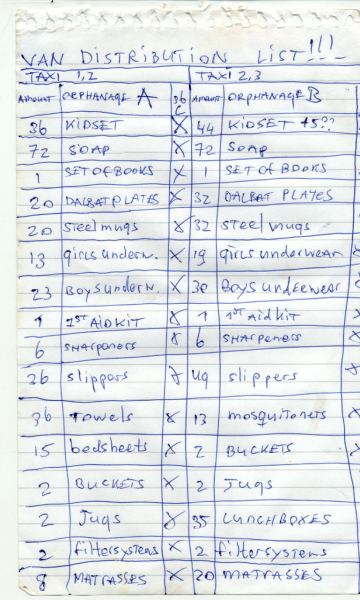 VAN DISTRIBUTION LIST!!!
TAXI 1,2 TAXI 2,3
AMOUNT ORPHANAGE A 36 AMOUNT ORPHANAGE B
36 KIDSET X 44 KIDSET +5??
72 SOAP X 72 SOAP
1 SET OF BOOKS X 1 SET OF BOOKS
20 DALBAT PLATES X 32 DALBAT PLATES
20 steel mugs X 32 steel mugs
13 girls underw. X 19 girls underwear
23 Boys underw. X 30 Boys underwear
1 1ST AID KIT X 1 1ST AID KIT
6 SHARPENERS X 6 SHARPENERS
36 slippers X 49 slippers
36 Towels X 13 mosquitonets X
15 bedsheets X 2 BUCKETS X
2 BUCKETS X 2 Jugs
2 Jugs X 35 LUNCHBOXES
2 filtersystems X 2 filtersystems
8 MATRASSES X 20 MATRASSES